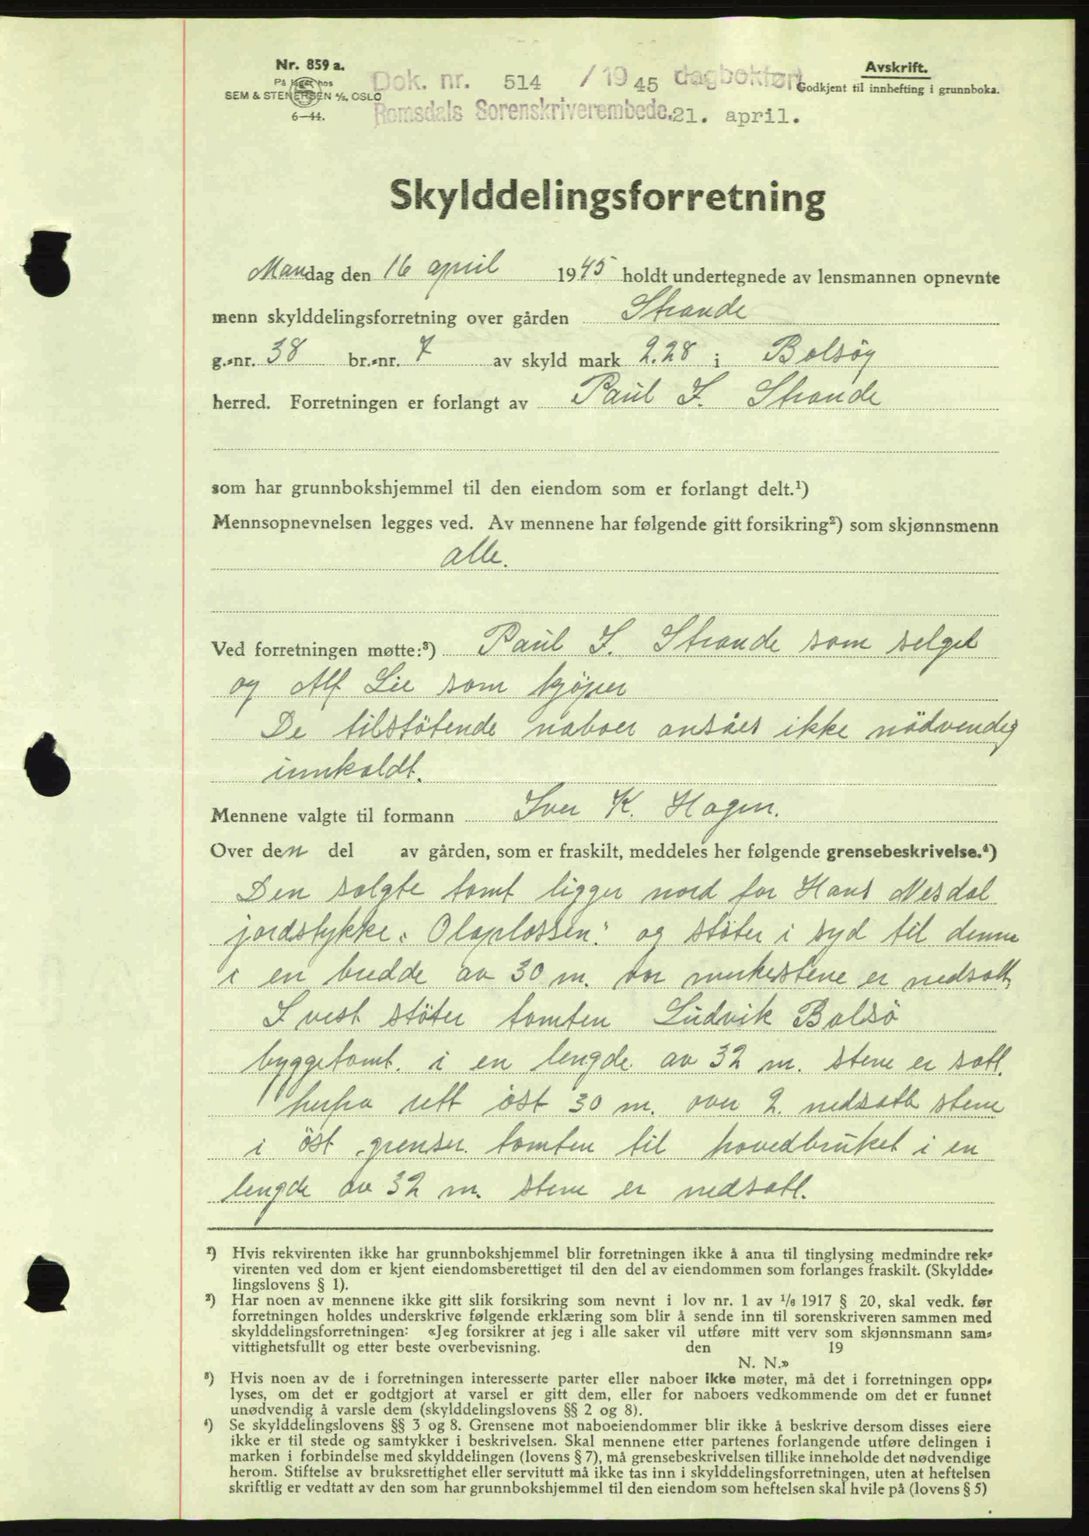 Nr. 859 a.
På lager hos
SEM & STENERSEN A/S, OSLO
6—44.
Dok. nr. 514 / 1945 dagbokført
Romsdals Sorenskriverembede. 21. april.
Avskrift.
Godkjent til innhefting i grunnboka.
Skylddelingsforretning
Mandag den 16 april 1945 holdt undertegnede av lensmannen opnevnte
menn skylddelingsforretning over gården Strande
g.-nr. 38 br.-nr. 7 av skyld mark 2.28 i Bolsøy
herred. Forretningen er forlangt av Paul I. Strande
som har grunnbokshjemmel til den eiendom som er forlangt delt.¹)
Mennsopnevnelsen legges ved. Av mennene har følgende gitt forsikring²) som skjønnsmenn
alle.
Ved forretningen møtte:³) Paul I. Strande som selger
og Alf Lie som kjøper
De tilstøtende naboer ansåes ikke nödvendig
innkaldt.
Mennene valgte til formann Iver K. Hagen.
Over den del av gården, som er fraskilt, meddeles her følgende grensebeskrivelse.⁴)
Den solgte tomt ligger nord for Hans Mesdal
jordstykke „Olaplassen." og støter i syd til denne
i en bredde av 30 m. var merkestene er nedsatt,
I vest støter tomten Ludvik Bolsö
byggetomt. i en lengde av 32 m. stene er satt.
herfra rett öst 30 m. over 2. nedsatte stene
i öst grenser tomten til hovedbruket i en
lengde av 32 m. stene er nedsatt.
¹) Hvis rekvirenten ikke har grunnbokshjemmel blir forretningen ikke å anta til tinglysing medmindre rek-
virenten ved dom er kjent eiendomsberettiget til den del av eiendommen som forlanges fraskilt. (Skyldde-
lingslovens § 1).
²) Har noen av mennene ikke gitt slik forsikring som nevnt i lov nr. 1 av 1/6 1917 § 20, skal vedk. før
forretningen holdes underskrive følgende erklæring som blir å sende inn til sorenskriveren sammen med
skylddelingsforretningen: «Jeg forsikrer at jeg i alle saker vil utføre mitt verv som skjønnsmann sam-
vittighetsfullt og etter beste overbevisning. den 19
N. N.»
³) Hvis noen av de i forretningen interesserte parter eller naboer ikke møter, må det i forretningen opp-
lyses, om det er godtgjort at varsel er gitt dem, eller for naboers vedkommende om det er funnet
unødvendig å varsle dem (skylddelingslovens §§ 2 og 8).
⁴) Se skylddelingslovens §§ 3 og 8. Grensene mot naboeiendommer blir ikke å beskrive dersom disses eiere
ikke er til stede og samtykker i beskrivelsen. Skal mennene etter partenes forlangende utføre delingen i
marken i forbindelse med skylddelingen (lovens § 7), må grensebeskrivelsen tillike inneholde det nødvendige
herom. Stiftelse av bruksrettighet eller servitutt må ikke tas inn i skylddelingsforretningen, uten at heftelsen
skriftlig er vedtatt av den som har grunnbokshjemmel til den eiendom som heftelsen skal hvile på (lovens § 5)